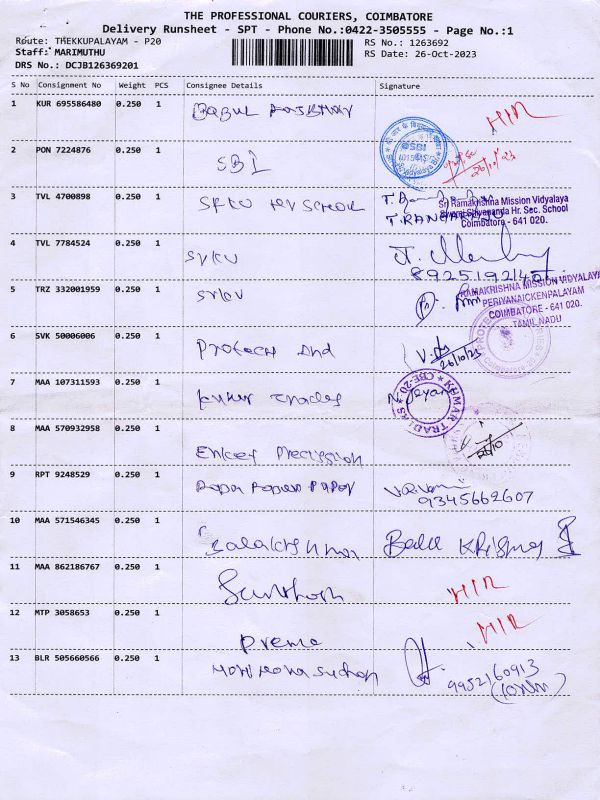 THE PROFESSIONAL COURIERS, COIMBATORE
Delivery Runsheet - SPT - Phone No.:0422-3505555 - Page No.:1
Route: THEKKUPALAYAM - P20 RS No.: 1263692
Staff: MARIMUTHU RS Date: 26-Oct-2023
DRS No.: DCJB126369201
S No Consignment No Weight PCS Consignee Details Signature
1 KUR 695586480 0.250 1
2 PON 7224876 0.250 1 SBI SBI 26/10/23
3 TVL 4700898 0.250 1 SRKV SCHOOL
Sri Ramakrishna Mission Vidyalaya
Hr. Sec. School
Coimbatore - 641 020.
4 TVL 7784524 0.250 1 SRKV
5 TRZ 332001959 0.250 1 SRKV
RAMAKRISHNA MISSION VIDYALAYA
PERIYANAICKENPALAYAM
COIMBATORE - 641 020.
TAMIL NADU
6 SVK 50006006 0.250 1 Protech Ind 26/10/23
7 MAA 107311593 0.250 1 Kumar Trades KUMAR TRADERS CBE-20
8 MAA 570932958 0.250 1 Precission 26/10
9 RPT 9248529 0.250 1 9345662607
10 MAA 571546345 0.250 1 Balakrishnan Bala Krishnan
11 MAA 862186767 0.250 1 Santhosh
12 MTP 3058653 0.250 1 Prema
13 BLR 505660566 0.250 1 9952160913